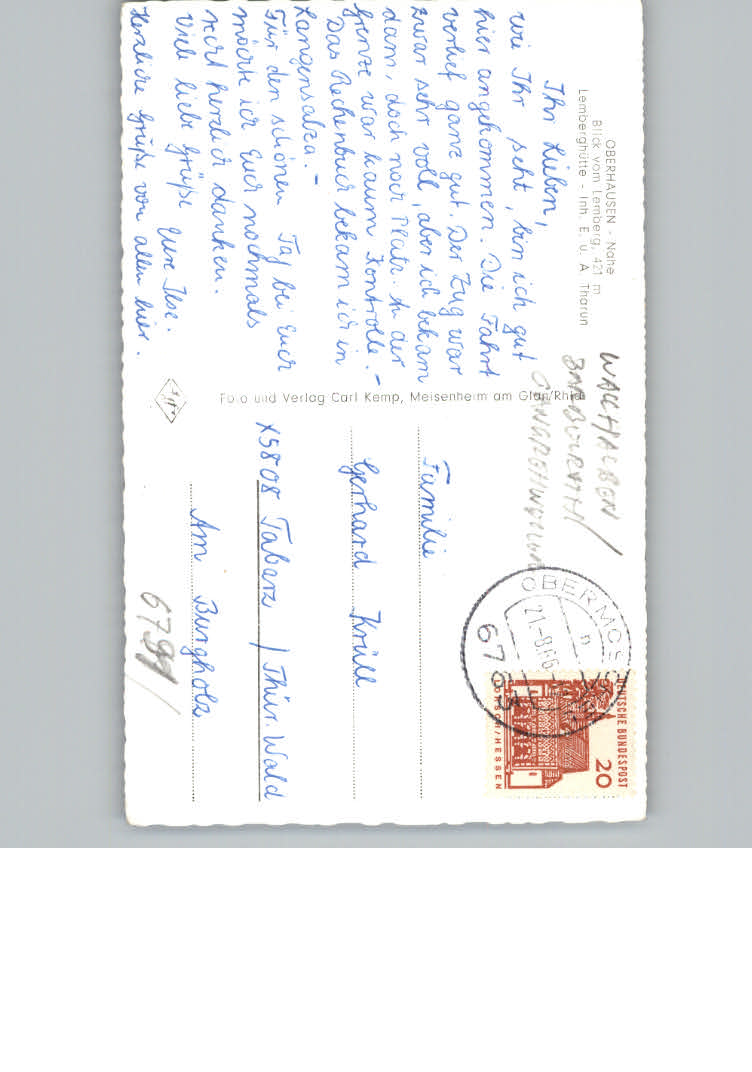 OBERHAUSEN - Nahe
Blick vom Lemberg, 421 m
Lemberghütte - Inh. E. u. A. Tharun
Ihr Lieben,
wie Ihr seht, bin ich gut
hier angekommen. Die Fahrt
verlief ganz gut. Der Zug war
zwar sehr voll, aber ich bekam
dann, doch noch Platz. An der
Grenze war kaum Kontrolle. -
Das Rechenbuch bekam ich in
Langensalza. -
Für den schönen Tag bei Euch
möchte ich Euch nochmals
recht herzlich danken.
Viele liebe Grüße Eure Ilse.
Herzliche Grüße von allen hier.
Foto und Verlag Carl Kemp, Meisenheim am Glan/Rhld
WALLHALBEN
OBERMOS
21.-9.66
DEUTSCHE BUNDESPOST
20
LORSCH/HESSEN
Familie
Gerhard Krüll
X5808 Tabarz / Thür. Wald
Am Burgholz